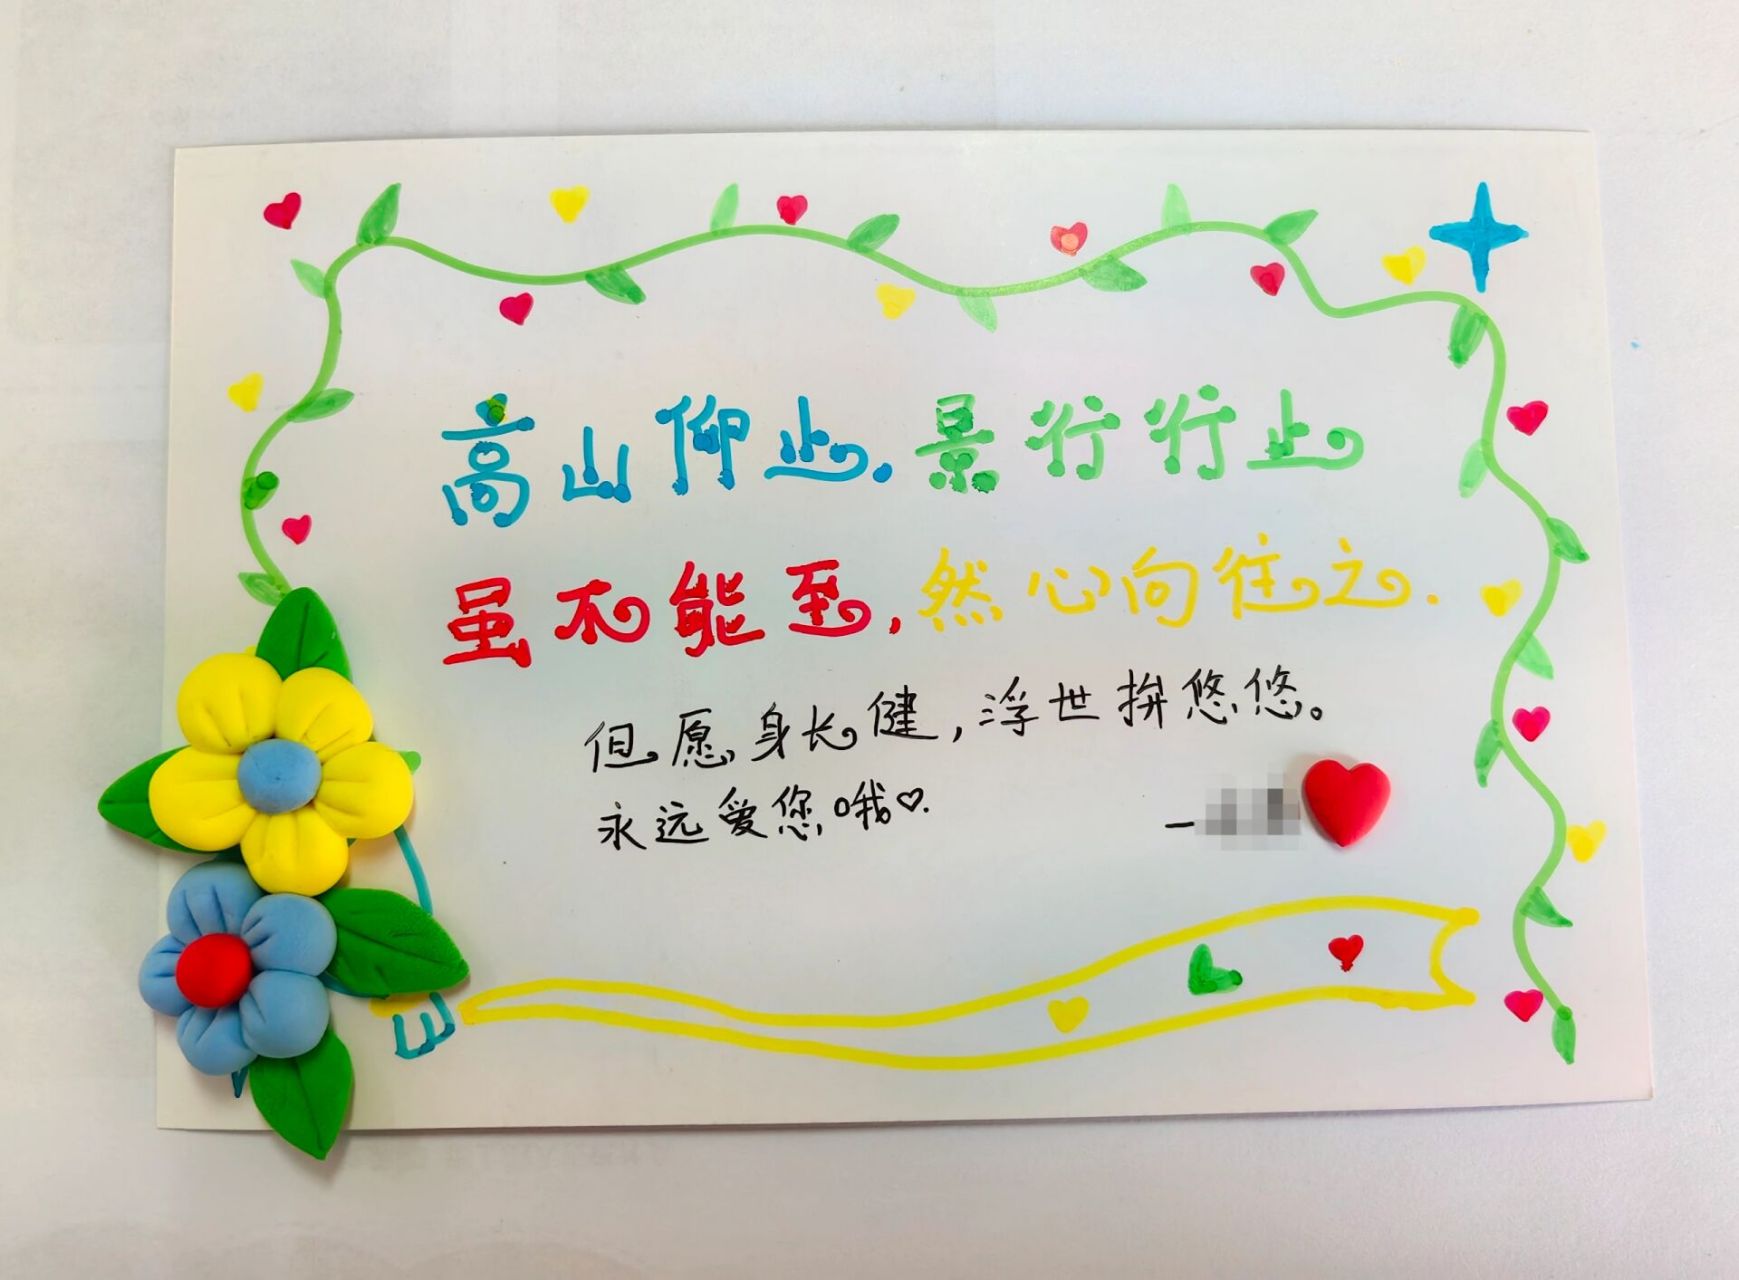 高山仰止.景行行止
虽不能至,然心向往之.
但愿身长健,浮世拚悠悠。
永远爱您哦♡.